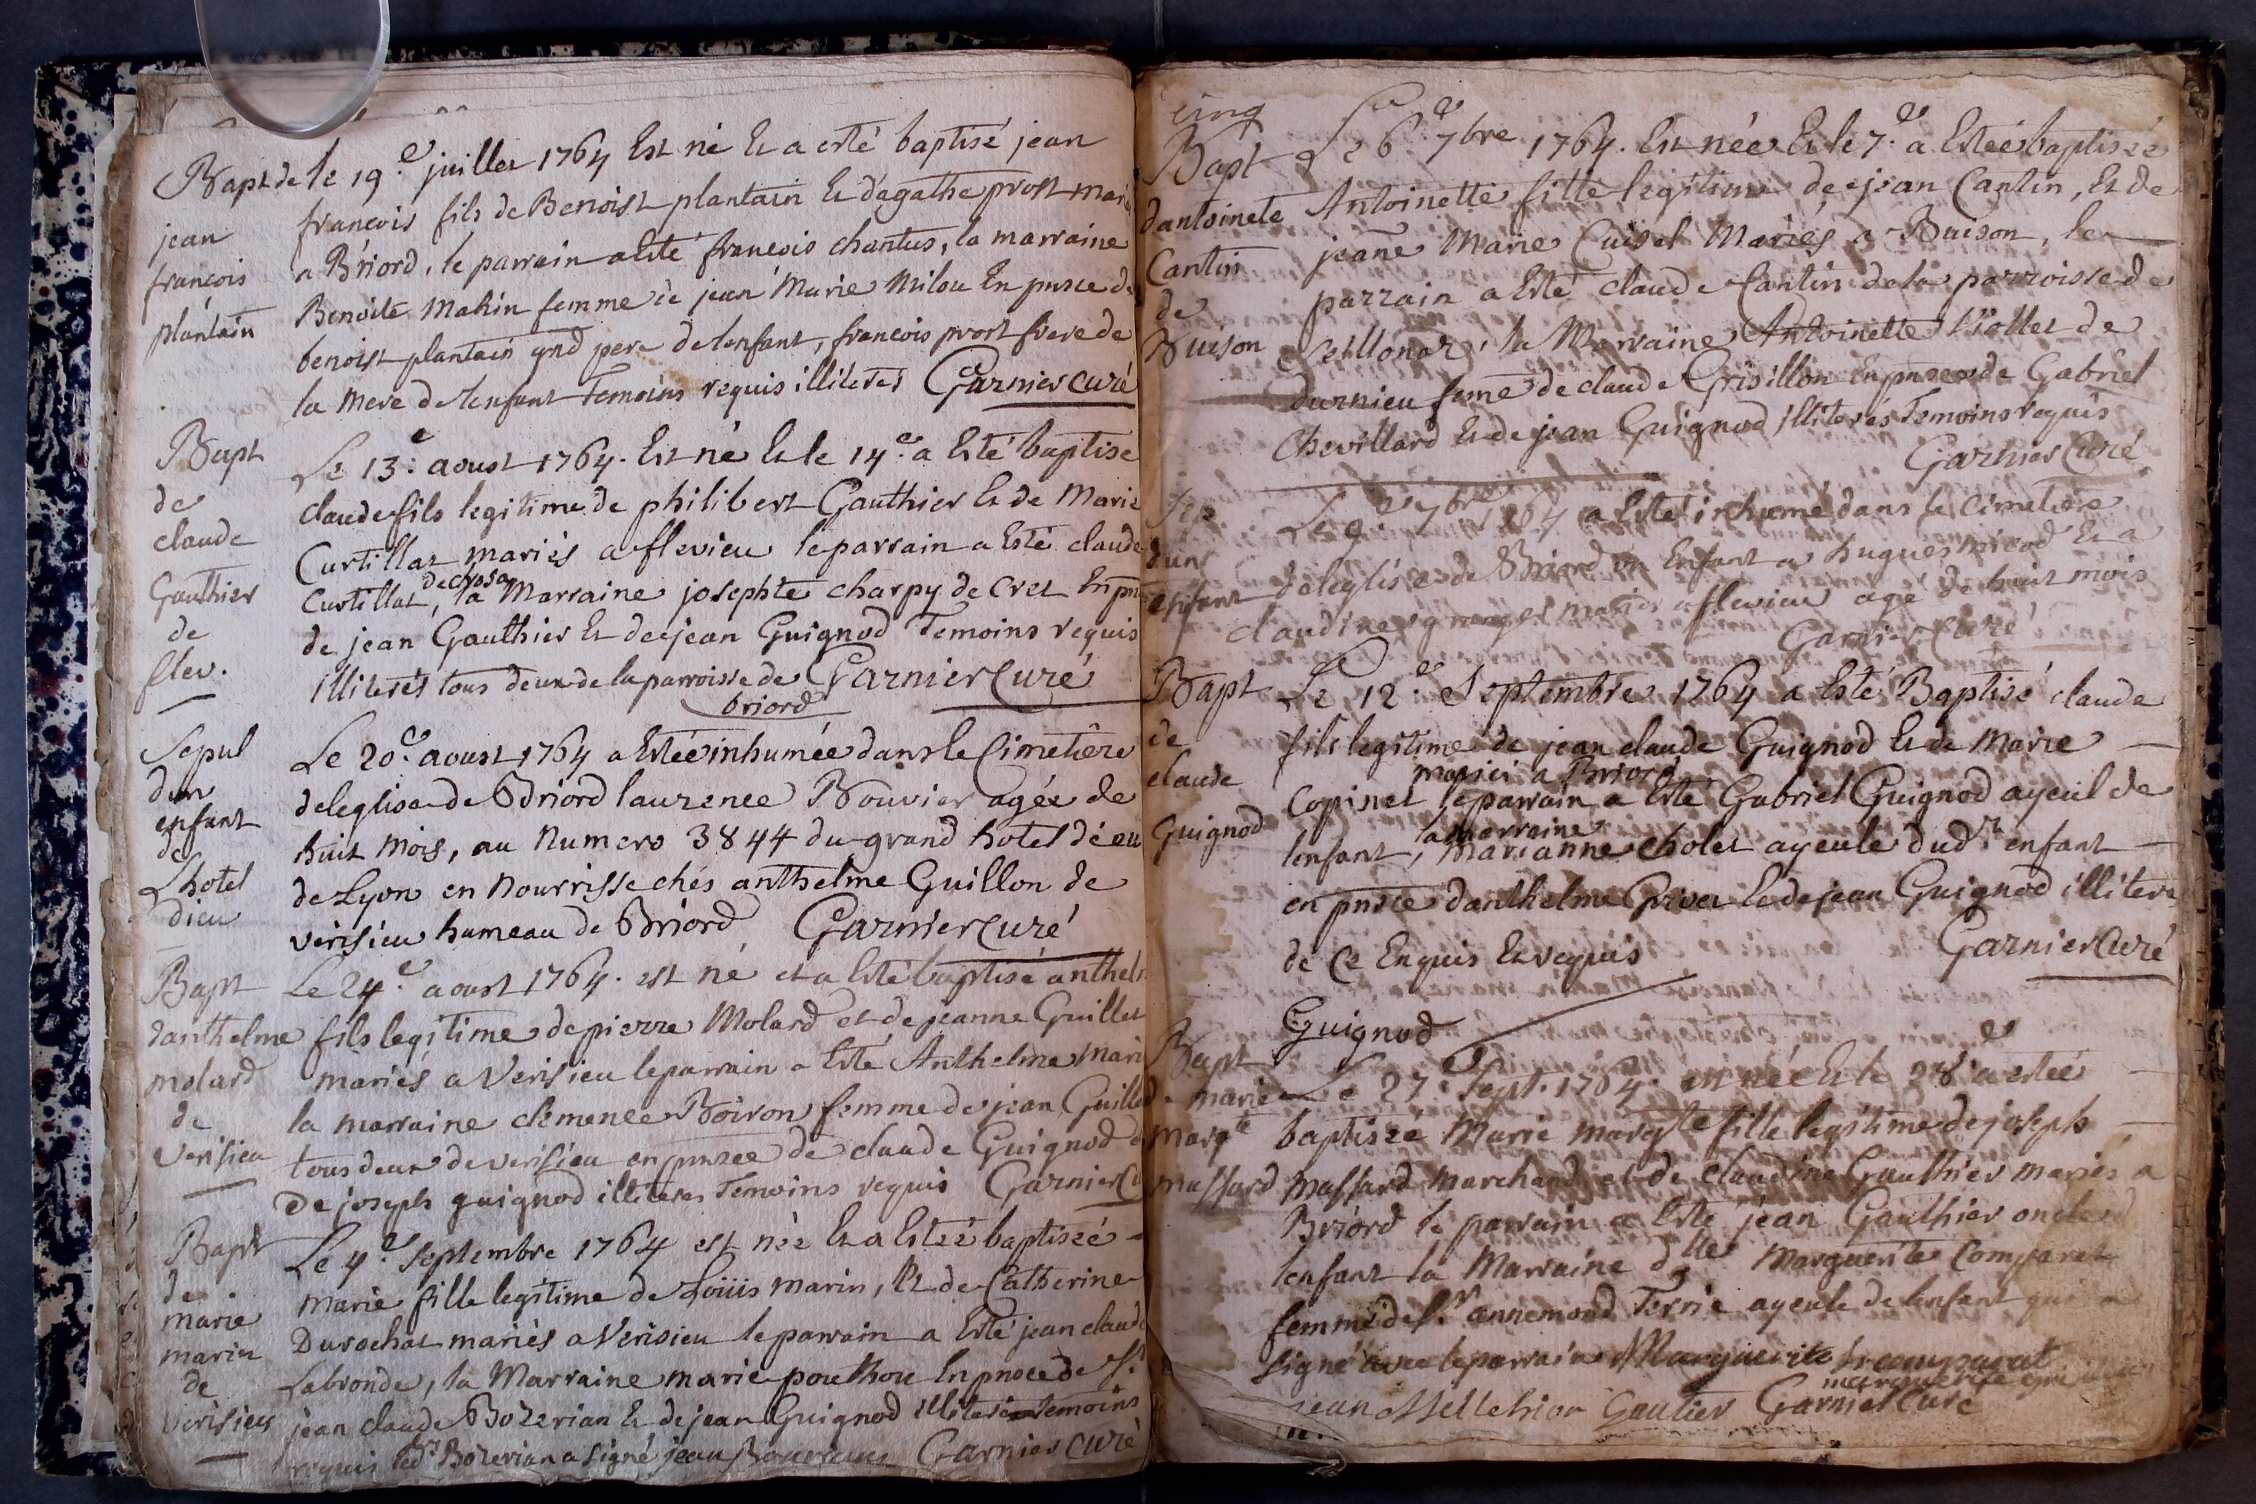 Bapt de le 19.e juillet 1764 Est né Et a esté baptisé jean
jean
francois
plantain
francois fils de Benoist plantain Et d'agathe prost mariés
a Briord, le parrain a esté francois chantus, la marraine
Benoite Mahin femme de jean Marie Milou En pnsce de
benoist plantain gnd pere de lenfant, francois prost frere de
la mere de lenfant Temoins requis illiterés Garnier curé
Bapt
de
claude
Gauthier
de
flev.
Le 13.e aoust 1764. Est né Et le 14.e a Esté baptisé
claude fils legitime de philibert Gauthier Et de Marie
Curtillat mariés a flevieu le parrain a Esté claude
Curtillat de crosa, la Marraine josephte charpy de Cret En pn
de jean Gauthier Et de jean Guignod Temoins requis
illiterés tous deux de la parroisse de Garnier Curé
briord
Sepul
dun
enfant
de
Lhotel
dieu
Le 20.e aoust 1764 a Estée inhumée dans le Cimetiêre
de leglise de Briord laurence Bouvier agée de
huit mois, au Numero 3844 du grand hotel déeu
de Lyon en Nourrisse chés anthelme Guillon de
verisieu hameau de Briord Garnier Curé
Bapt
danthelme
molard
de
verisieu
Le 24.e aoust 1764. est né et a Esté baptisé anthelm
fils legitime de pierre Molard et de jeanne Guillet
mariés a Verisieu le parrain a Esté Anthelme Marin
la marraine clemence Boiron femme de jean Guillet
tous deux de verisieu en pnsce de claude Guignod et
De joseph guignod illiteres Temoins requis Garnier Cu
Bapt
de
marie
marin
de
verisieu
Le 4.e septembre 1764 est née Et a Estée baptisée
marie fille legitime de Loüis marin, Et de Catherine
Durochat mariés a Verisieu le parrain a Esté jean claude
Labronde, la Marraine marie pouthou En pnsce de Sr.
jean claude Bozerian Et de jean Guignod illiteré Temoins
requis led. Sr Bozerian a signé jean Garnier curé
cinq
Bapt
dantoinete
Cantin
de
Buison
Le 6.e 7bre 1764. Est née Et le 7.e a Estée baptisée
Antoinette fille legitime de jean Cantin, Et de
jeane Marie Cuisel Mariés a Buison, le
parrain a Esté claude Cantin de la parroisse de
Seillonaz, la Marraine Antoinette Viollet de
durnieu feme de claude Grisillon En pnsce de Gabriel
Chevillard Et de jean Guignod illiterés Temoins requis
Garnier Curé
Sep
dun
enfant
Le 9.e 7bre 1764 a Esté inhumé dans le Cimetiere
de leglise de Briord un Enfant a hugues micod Et a
claudine mariés a flevieu agé de huit mois
Garnier Curé
Bapt
de
claude
Guignod
Le 12.e Septembre 1764 a Esté Baptisé claude
fils legitime de jean claude Guignod Et de Marie
Copinet mariés a Briord le parrain a Esté Gabriel Guignod ayeul de
lenfant, la marraine Marianne cholet ayeule dudt. enfant
en pnsce d'anthelme Privet Et de jean Guignod illitere
de Ce Enquis Et requis Garnier Curé
Guignod
Bapt
de marie
Margte
massard
Le 27.e Sept. 1764. est née Et le 28.e a estée
baptisée Marie margte fille legitime de joseph
massard marchand et de claudine Gauthier mariés a
Briord le parrain a Esté jean Gauthier oncle de
lenfant la Marraine dlle Marguerite Comparat
femme de Sr. annemond Terrie ayeule de lenfant qui a
signé avec le parrain Marguerite comparat
jean Gautier Garnier Curé